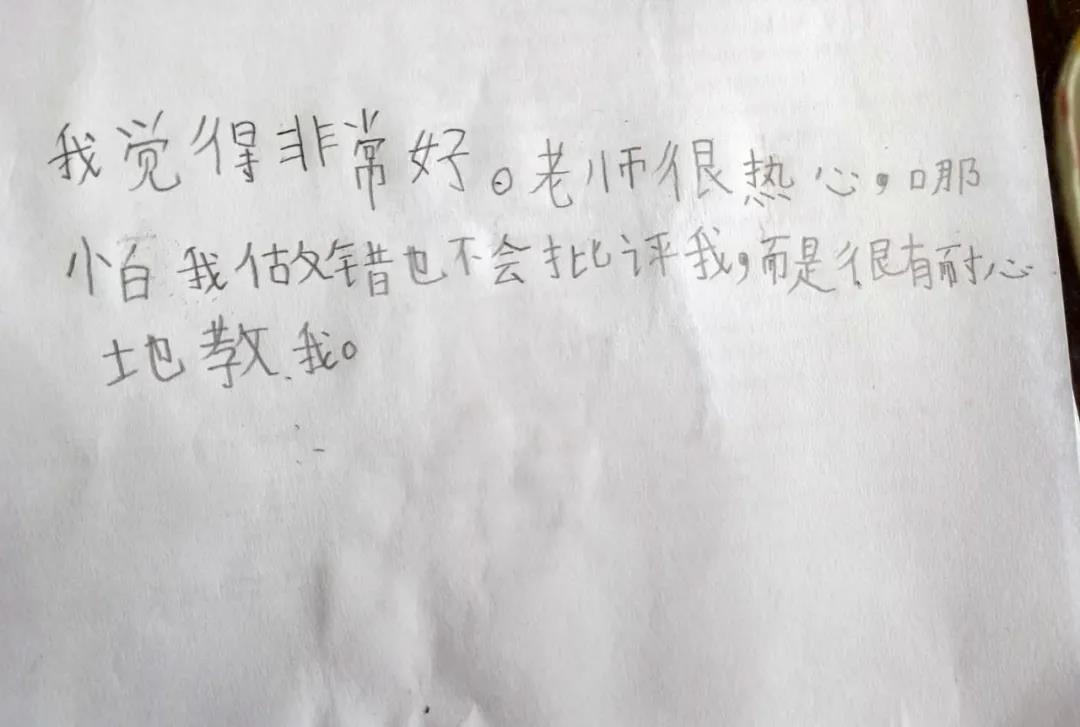 我觉得非常好。老师很热心,哪
小白我做错也不会批评我,而是很有耐心
地教我。